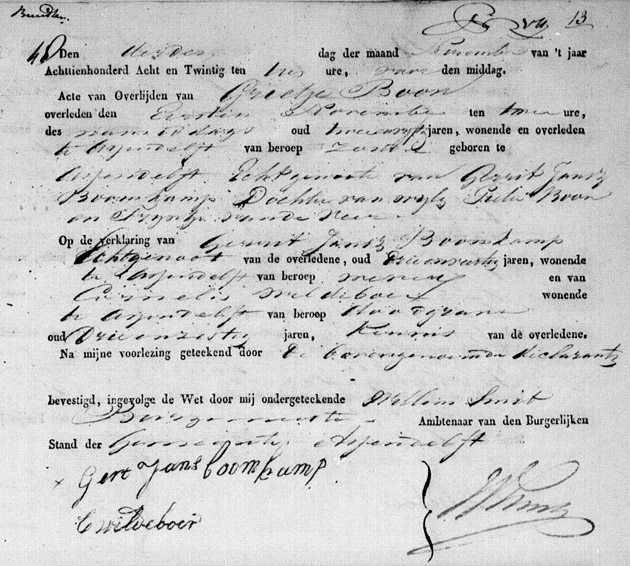 13
48 Den derden dag der maand November van 't jaar
Achttienhonderd Acht en Twintig ten tien ure, voor den middag.
Acte van Overlijden van Grietje Boon
overleden den Eersten November ten twee ure,
des namiddags oud jaren, wonende en overleden
te Assendelft van beroep zonder geboren te
Assendelft Echtgenoote van Gerrit Jansz
Boomkamp Dochter van wyle Boon
en Tryntje vande Neer
Op de verklaring van Gerrit Jansz Boomkamp
Echtgenoot van de overledene, oud jaren, wonende
te Assendelft van beroep en van
Cornelis Wildeboer wonende
te Assendelft van beroep
oud Drieenzestig jaren, Kennis van de overledene.
Na mijne voorlezing geteekend door de bovengenoemde declaranten
bevestigd, ingevolge de Wet door mij ondergeteekende Willem Smit
Burgemeester Ambtenaar van den Burgerlijken
Stand der Gemeente Assendelft
Gert Jans boomkamp
C wildeboer